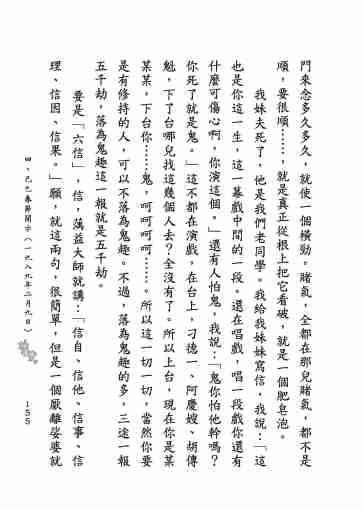 門來念多久多久，就使一個橫勁。賭氣，全都在那兒賭氣，都不是
順，要很順……，就是真正從根上把它看破，就是一個肥皂泡。
我妹夫死了，他是我們老同學。我給我妹妹寫信，我說：「這
也是你這一生，這一幕戲中間的一段。還在唱戲，唱一段戲你還有
什麼可傷心啊，你演這個。」還有人怕鬼，我說：「鬼你怕他幹嗎？
你死了就是鬼。」這不都在演戲，在台上，刁德一、阿慶嫂、胡傳
魁，下了台哪兒找這幾個人去？全沒有了。所以上台，現在你是某
某某，下台你……鬼，呵呵呵呵……。所以這一切一切，當然你要
是有修持的人，可以不落為鬼趣。不過，落為鬼趣的多，三途一報
五千劫，落為鬼趣這一報就是五千劫。
要是「六信」，信，蕅益大師就講：「信自、信他、信事、信
理、信因、信果。」願，就這兩句。很簡單，但是一個厭離娑婆就
四、己巳春節開示（一九八九年二月九日）
155